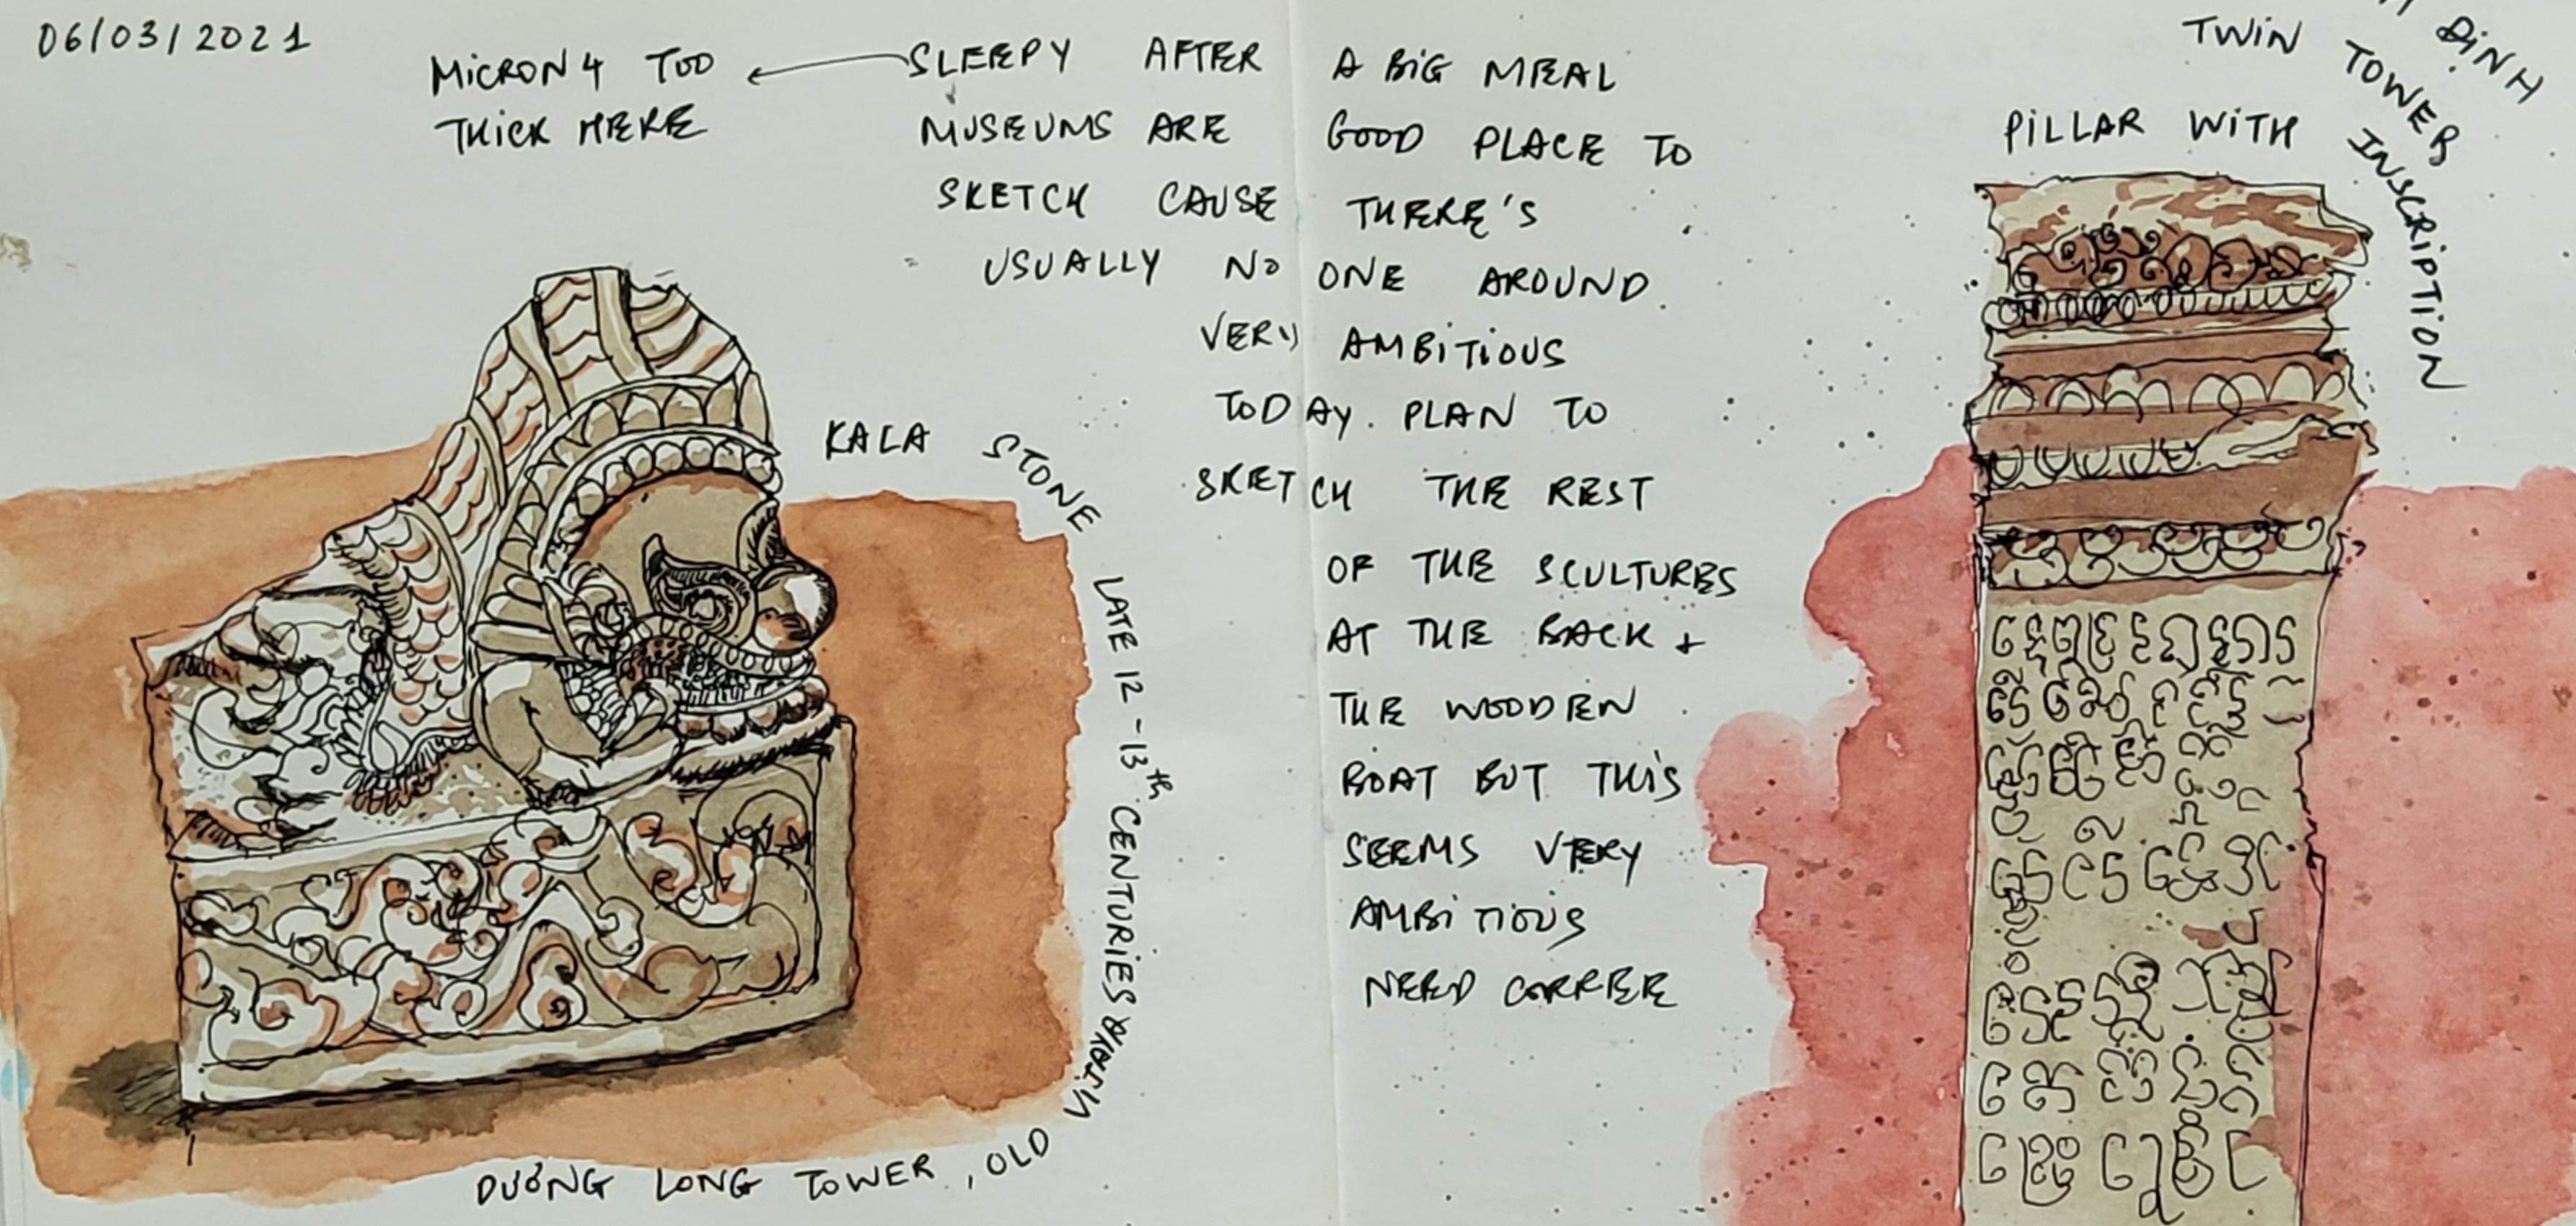 06/03/2021
MICRON 4 TOO
THICK HERE
SLEEPY AFTER A BIG MEAL
MUSEUMS ARE GOOD PLACE TO
SKETCH CAUSE THERE'S
USUALLY NO ONE AROUND
VERY AMBITIOUS
TODAY. PLAN TO
SKETCH THE REST
OF THE SCULTURES
AT THE BACK +
THE WOODEN
BOAT BUT THIS
SEEMS VERY
AMBITIOUS
NEED COFFEE
KALA STONE LATE 12-13th CENTURIES
DƯỜNG LONG TOWER, OLD VIJAYA
PILLAR WITH INSCRIPTION
TWIN TOWER
ĐỊNH